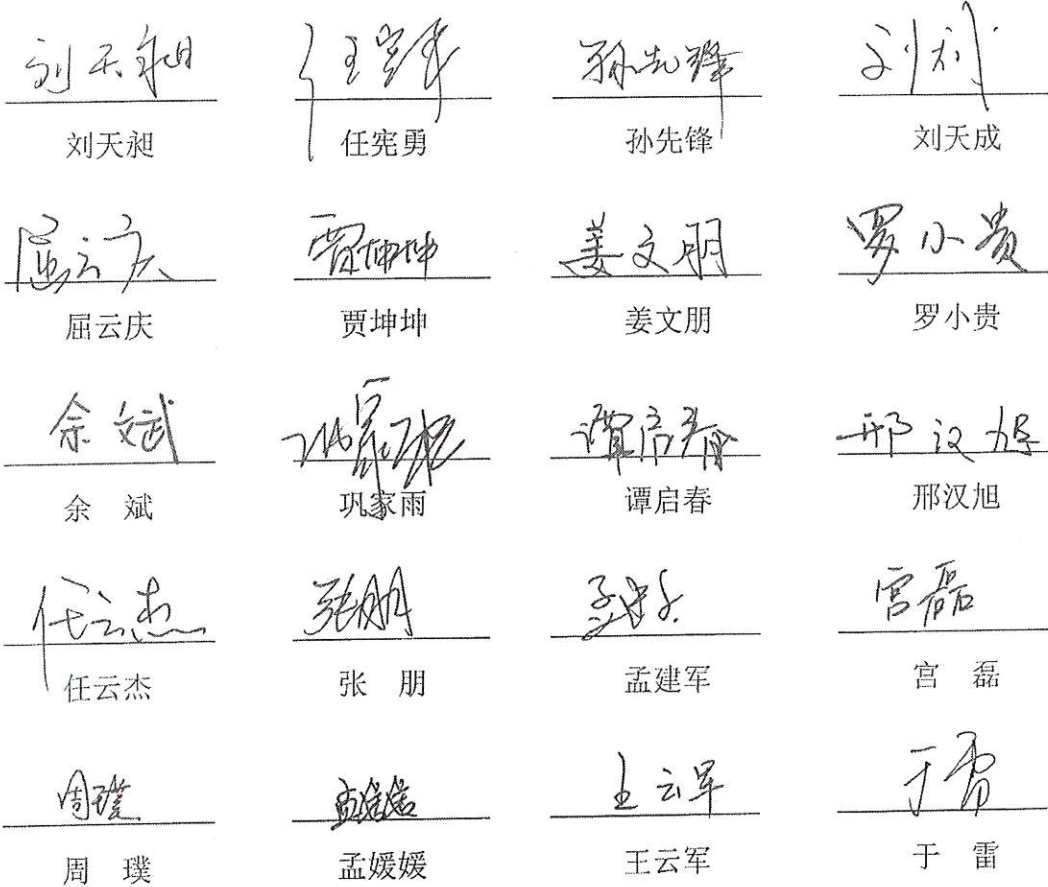 刘天昶 任宪勇 孙先锋 刘天成
刘天昶 任宪勇 孙先锋 刘天成
屈云庆 贾坤坤 姜文朋 罗小贵
屈云庆 贾坤坤 姜文朋 罗小贵
余斌 巩家雨 谭启春 邢汉旭
余 斌 巩家雨 谭启春 邢汉旭
任云杰 张朋 孟建军 宫磊
任云杰 张 朋 孟建军 宫 磊
周璞 孟媛媛 王云军 于雷
周 璞 孟媛媛 王云军 于 雷